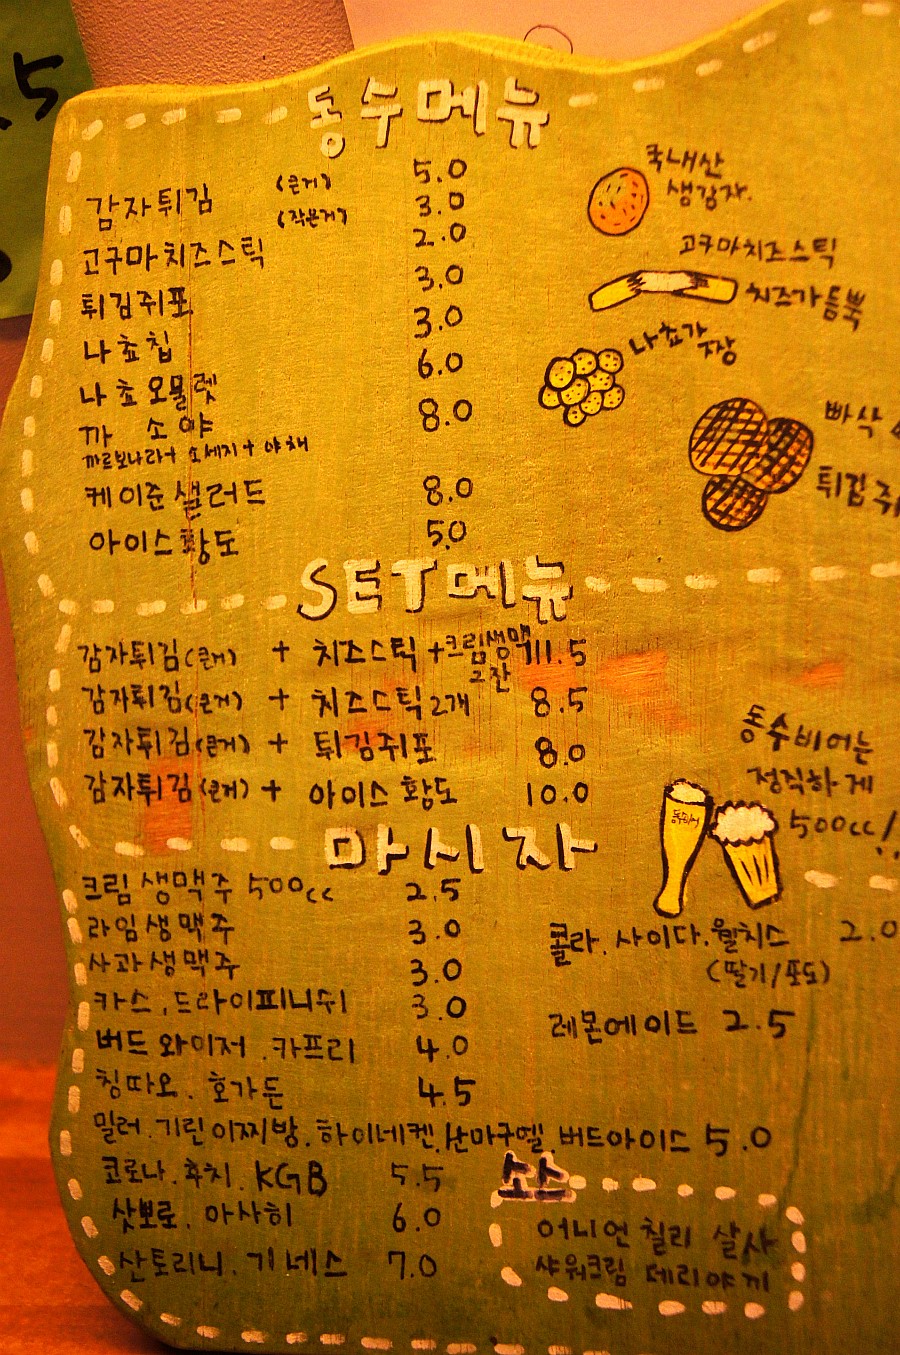 .5
동수메뉴
감자튀김 (큰거) 5.0
(작은거) 3.0
고구마치즈스틱 2.0
튀김쥐포 3.0
나쵸칩 3.0
나쵸오믈렛 6.0
까 소 야 8.0
까르보나라+ 소세지 + 야채
케이준샐러드 8.0
아이스황도 5.0
국내산
생감자.
고구마치즈스틱
치즈가듬뿍
나쵸가
짱
빠삭
튀김쥐
SET메뉴
감자튀김(큰거) + 치즈스틱 +크림생맥 2잔 11.5
감자튀김(큰거) + 치즈스틱2개 8.5
감자튀김(큰거) + 튀김쥐포 8.0
감자튀김(큰거) + 아이스 황도 10.0
동수비어는
정직하게
500cc!!
동수비어
마시자
크림생맥주 500cc 2.5
라임생맥주 3.0
사과생맥주 3.0
카스.드라이피니쉬 3.0
버드와이저.카프리 4.0
칭따오.호가든 4.5
밀러.기린이찌방.하이네켄.산마구엘.버드아이스 5.0
코로나.후치.KGB 5.5
삿뽀로.아사히 6.0
산토리니.기네스 7.0
콜라.사이다.웰치스 2.0
(딸기/포도)
레몬에이드 2.5
소스
어니언 칠리 살사
샤워크림 데리야끼